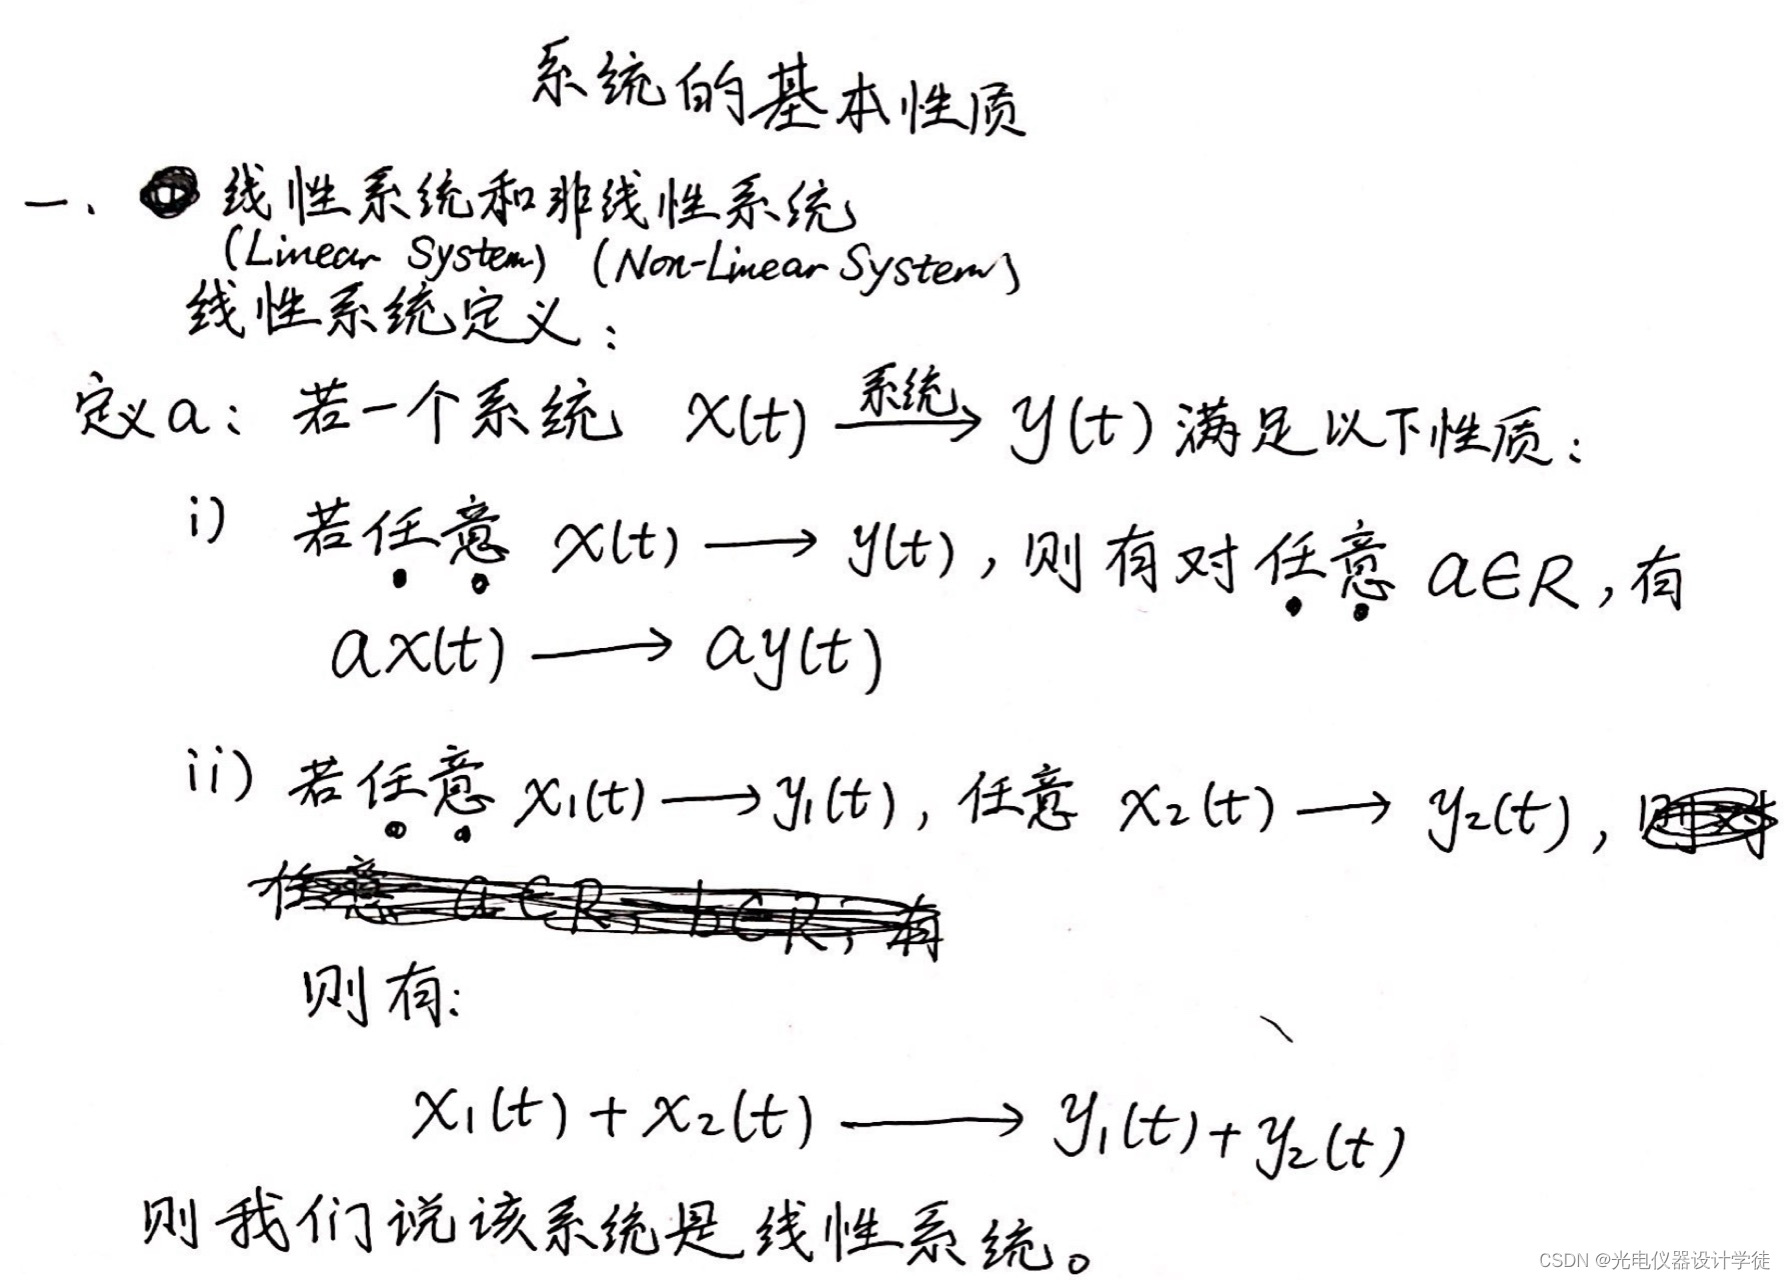 系统的基本性质
一、线性系统和非线性系统
(Linear System) (Non-Linear System)
线性系统定义：
定义a：若一个系统 x(t) 系统→ y(t) 满足以下性质：
i) 若任意 x(t) → y(t)，则有对任意 a∈R，有
ax(t) → ay(t)
ii) 若任意 x₁(t) → y₁(t)，任意 x₂(t) → y₂(t)，则对
任意 a∈R，b∈R，有
则有：
x₁(t) + x₂(t) → y₁(t) + y₂(t)
则我们说该系统是线性系统。
CSDN @光电仪器设计学徒